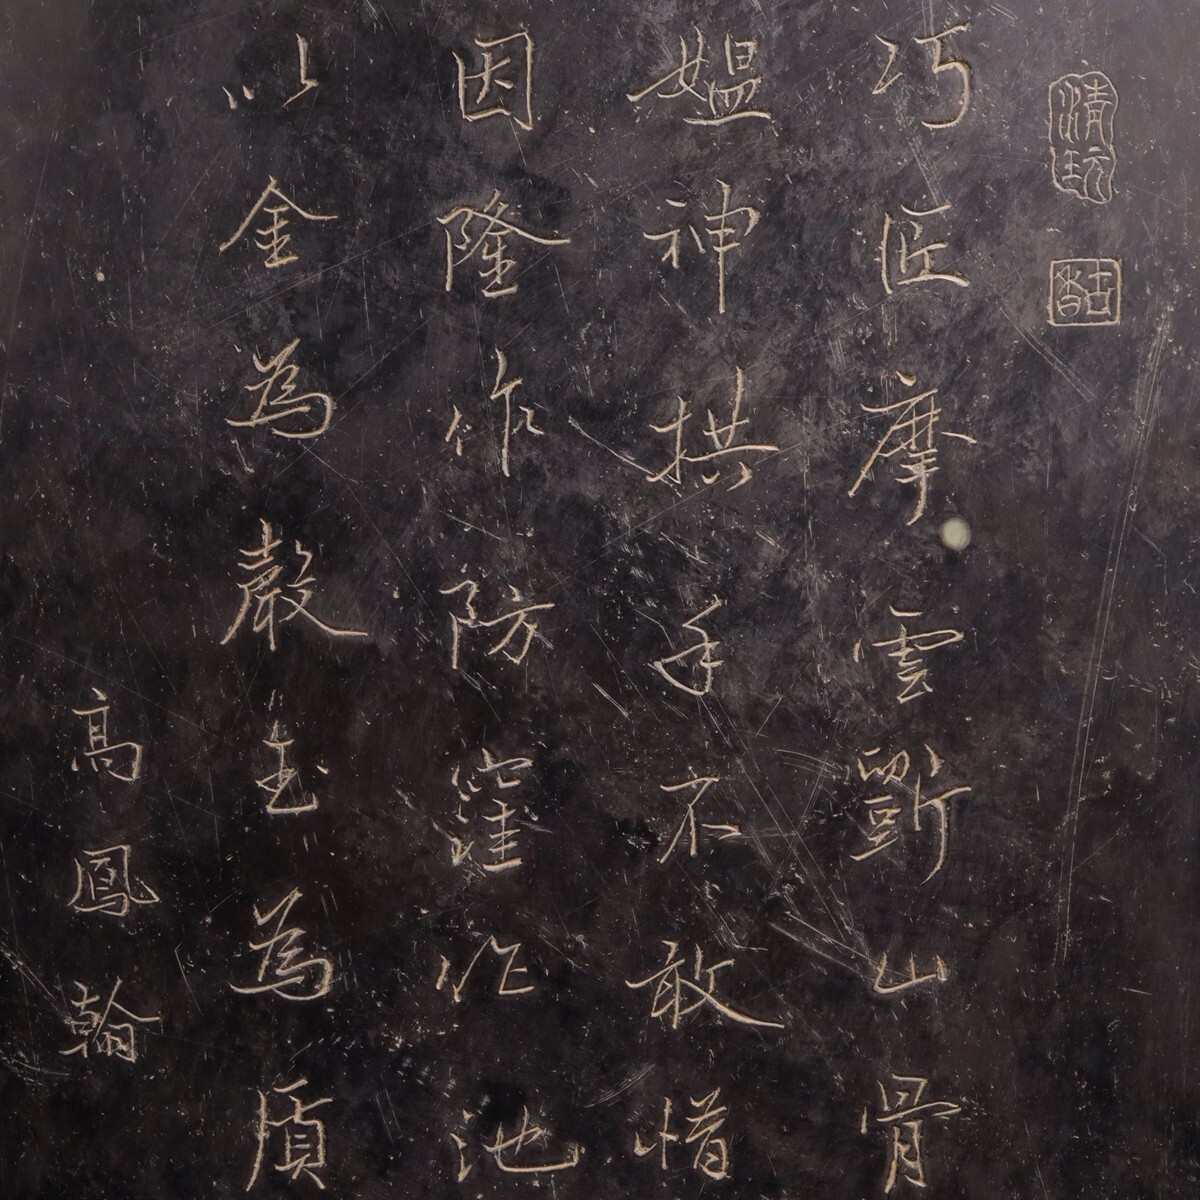 清玩
巧匠摩雲斲山骨
媼神拱手不敢惜
因隆作防窪作池
以金為聲玉為質
高鳳翰